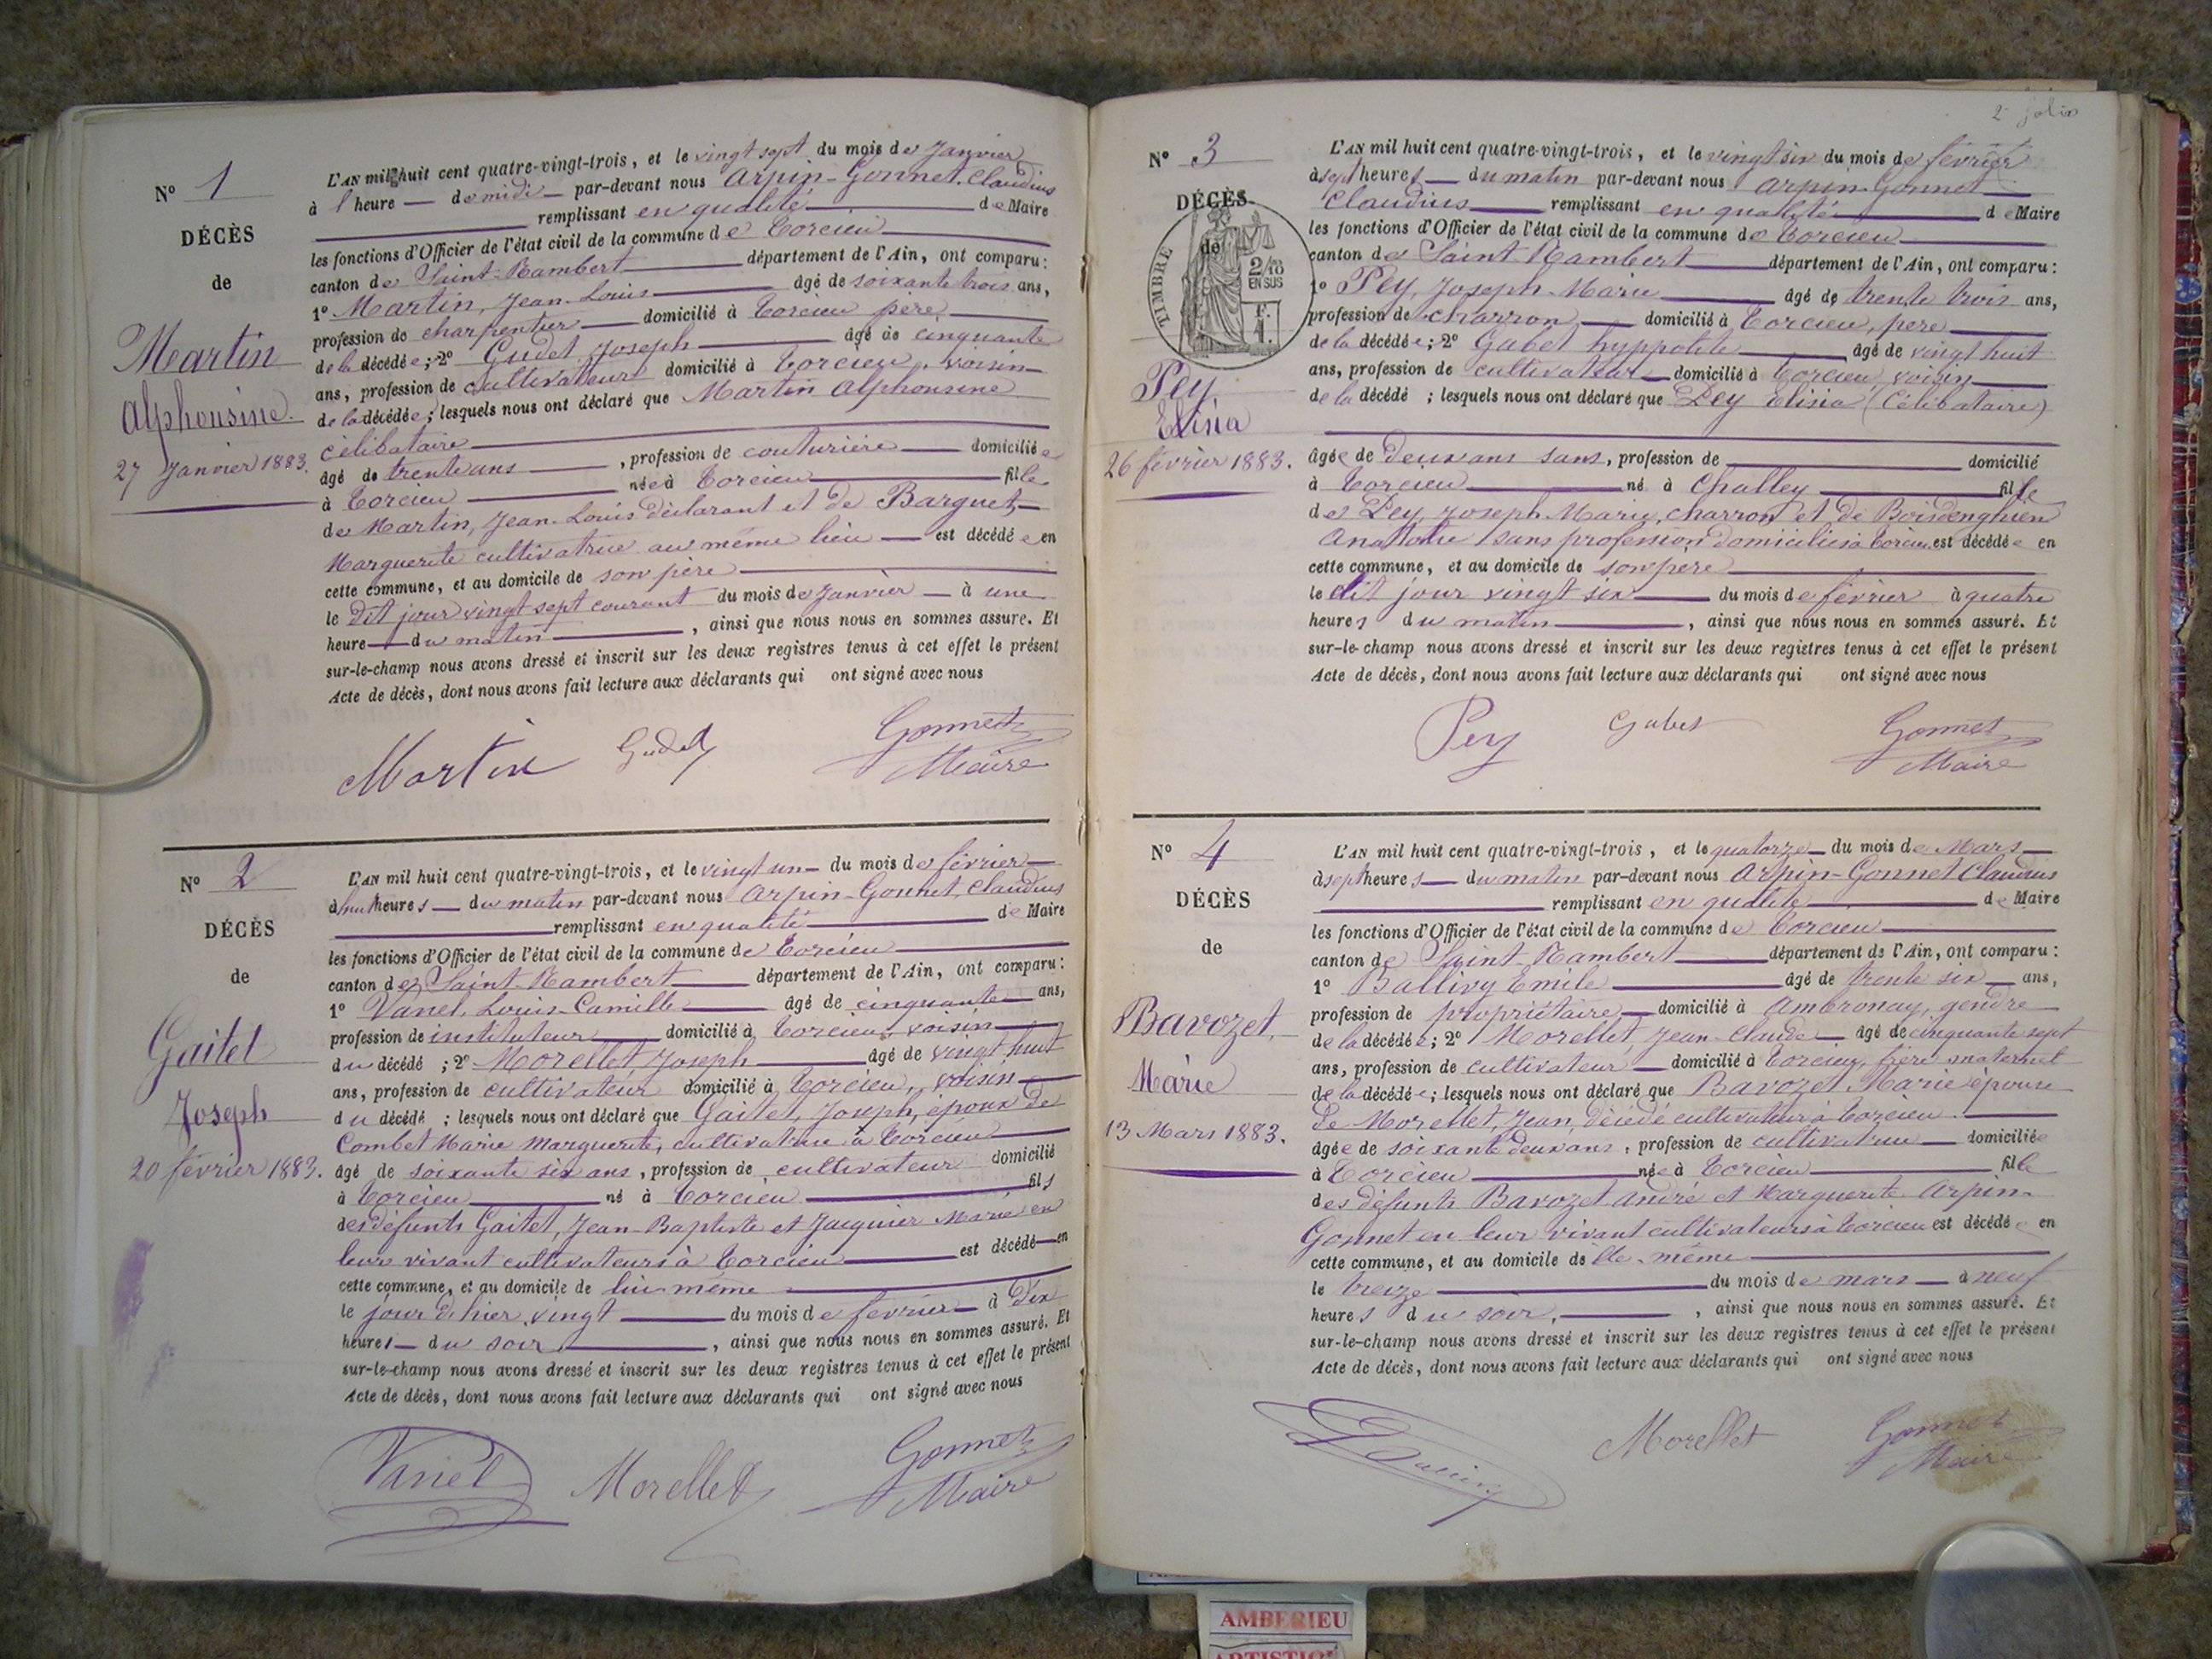 N° 1
DÉCÈS
de
Martin
Alphonsine.
27 Janvier 1883.
L'AN mil huit cent quatre-vingt-trois, et le vingt sept du mois de Janvier
à 1 heure de midi par-devant nous Arpin-Gonnet, Claudius
remplissant en qualité de Maire
les fonctions d'Officier de l'état civil de la commune de Torcieu
canton de Saint-Rambert département de l'Ain, ont comparu:
1° Martin, Jean-Louis âgé de soixante trois ans,
profession de charpentier domicilié à Torcieu père
de la décédée; 2° Gudet Joseph âgé de cinquante
ans, profession de cultivateur domicilié à Torcieu, voisin
de la décédée; lesquels nous ont déclaré que Martin Alphonsine
célibataire
âgé de trente ans, profession de couturière domiciliée
à Torcieu née à Torcieu fille
de Martin, Jean-Louis déclarant et de Barguet,
Marguerite cultivatrice au même lieu est décédée en
cette commune, et au domicile de son père
le dit jour vingt sept courant du mois de Janvier à une
heure du matin, ainsi que nous nous en sommes assuré. Et
sur-le-champ nous avons dressé et inscrit sur les deux registres tenus à cet effet le présent
Acte de décès, dont nous avons fait lecture aux déclarants qui ont signé avec nous
Martin Gudet Gonnet
Maire
N° 2
DÉCÈS
de
Gaitet
Joseph
20 février 1883.
L'AN mil huit cent quatre-vingt-trois, et le vingt un du mois de février
à huit heures du matin par-devant nous Arpin-Gonnet, Claudius
remplissant en qualité de Maire
les fonctions d'Officier de l'état civil de la commune de Torcieu
canton de Saint-Rambert département de l'Ain, ont comparu:
1° Vanel, Louis-Camille âgé de cinquante ans,
profession de instituteur domicilié à Torcieu voisin
du décédé; 2° Morellet, Joseph âgé de vingt huit
ans, profession de cultivateur domicilié à Torcieu, voisin
du décédé; lesquels nous ont déclaré que Gaitet, Joseph, époux de
Combet Marie Marguerite, cultivatrice à Torcieu
âgé de soixante six ans, profession de cultivateur domicilié
à Torcieu né à Torcieu fils
des défunts Gaitet, Jean-Baptiste et Jacquier Marie en
leur vivant cultivateurs à Torcieu est décédé en
cette commune, et au domicile de lui-même
le jour d'hier vingt du mois de février à dix
heures du soir, ainsi que nous nous en sommes assuré. Et
sur-le-champ nous avons dressé et inscrit sur les deux registres tenus à cet effet le présent
Acte de décès, dont nous avons fait lecture aux déclarants qui ont signé avec nous
Vanel Morellet Gonnet
Maire
2
N° 3
DÉCÈS
de
TIMBRE
2/10
EN SUS
F.
1.
Pey,
Elisia
26 février 1883.
L'AN mil huit cent quatre-vingt-trois, et le vingt six du mois de février
à sept heures du matin par-devant nous Arpin-Gonnet
Claudius remplissant en qualité de Maire
les fonctions d'Officier de l'état civil de la commune de Torcieu
canton de Saint-Rambert département de l'Ain, ont comparu:
1° Pey, Joseph-Marie âgé de trente trois ans,
profession de charron domicilié à Torcieu, père
de la décédée; 2° Gabet hyppolite âgé de vingt huit
ans, profession de cultivateur domicilié à Torcieu voisin
de la décédé; lesquels nous ont déclaré que Pey Elisia (Célibataire)
âgée de deux ans sans, profession de domicilié
à Torcieu né à Challey fille
de Pey, Joseph-Marie, charron et de Boisdenghien
sans profession domiciliés à Torcieu est décédée en
cette commune, et au domicile de son père
le dit jour vingt six du mois de février à quatre
heures du matin, ainsi que nous nous en sommes assuré. Et
sur-le-champ nous avons dressé et inscrit sur les deux registres tenus à cet effet le présent
Acte de décès, dont nous avons fait lecture aux déclarants qui ont signé avec nous
Pey Gabet Gonnet
Maire
N° 4
DÉCÈS
de
Bavozet,
Marie
13 Mars 1883.
L'AN mil huit cent quatre-vingt-trois, et le quatorze du mois de Mars
à sept heures du matin par-devant nous Arpin-Gonnet Claudius
remplissant en qualité de Maire
les fonctions d'Officier de l'état civil de la commune de Torcieu
canton de Saint-Rambert département de l'Ain, ont comparu:
1° Ballivy Emile âgé de trente six ans,
profession de propriétaire domicilié à Ambronay, gendre
de la décédée; 2° Morellet, Jean-Claude âgé de cinquante sept
ans, profession de cultivateur domicilié à Torcieu, frère maternel
de la décédée; lesquels nous ont déclaré que Bavozet Marie épouse
de Morellet, Jean, décédé cultivateur à Torcieu
âgée de soixante deux ans, profession de cultivatrice domiciliée
à Torcieu née à Torcieu fille
des défunts Bavozet André et Marguerite Arpin-
Gonnet en leur vivant cultivateurs à Torcieu est décédée en
cette commune, et au domicile de lle-même
le treize du mois de mars à neuf
heures du soir, ainsi que nous nous en sommes assuré. Et
sur-le-champ nous avons dressé et inscrit sur les deux registres tenus à cet effet le présent
Acte de décès, dont nous avons fait lecture aux déclarants qui ont signé avec nous
Morellet Gonnet
Maire
AMBERIEU